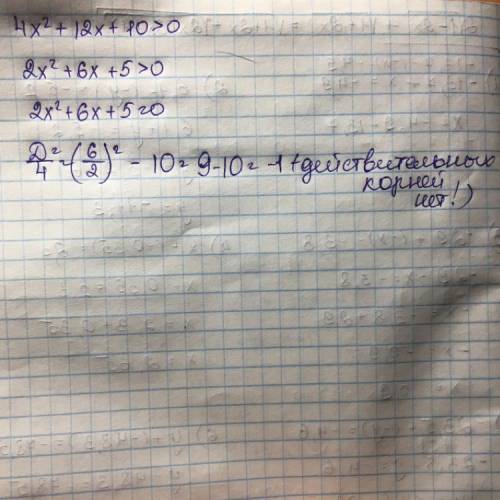 4x² + 12x + 10 > 0
2x² + 6x + 5 > 0
2x² + 6x + 5 = 0
D/4 = (6/2)² - 10 = 9 - 10 = -1 (действительных
корней
нет!)